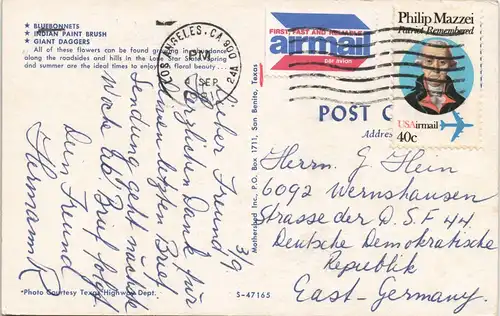 ★ BLUEBONNETS
★ INDIAN PAINT BRUSH
★ GIANT DAGGERS
All of these flowers can be found growing in abundance
along the roadsides and hills in the Lone Star State. Spring
and summer are the ideal times to enjoy floral beauty...
LOS ANGELES, CA 900
PM
SEP
24A
FIRST, FAST AND RELIABLE
airmail
par avion
Philip Mazzei
Patriot Remembered
USAirmail
40c
POST C
Addres
3/9
Lieber Freund,
Herzlichen Dank für
Deinen letzten Brief
Sendung geht nächste
Woche ab Brief folgt
Dein Freund
Hermann R
Mothershed Inc., P.O. Box 1711, San Benito, Texas
Herrn G Hein
6092 Wernshausen
Strasse der D.S.F 44
Deutsche Demokratische
Republik
East-Germany.
*Photo Courtesy Texas Highway Dept.
S-47165